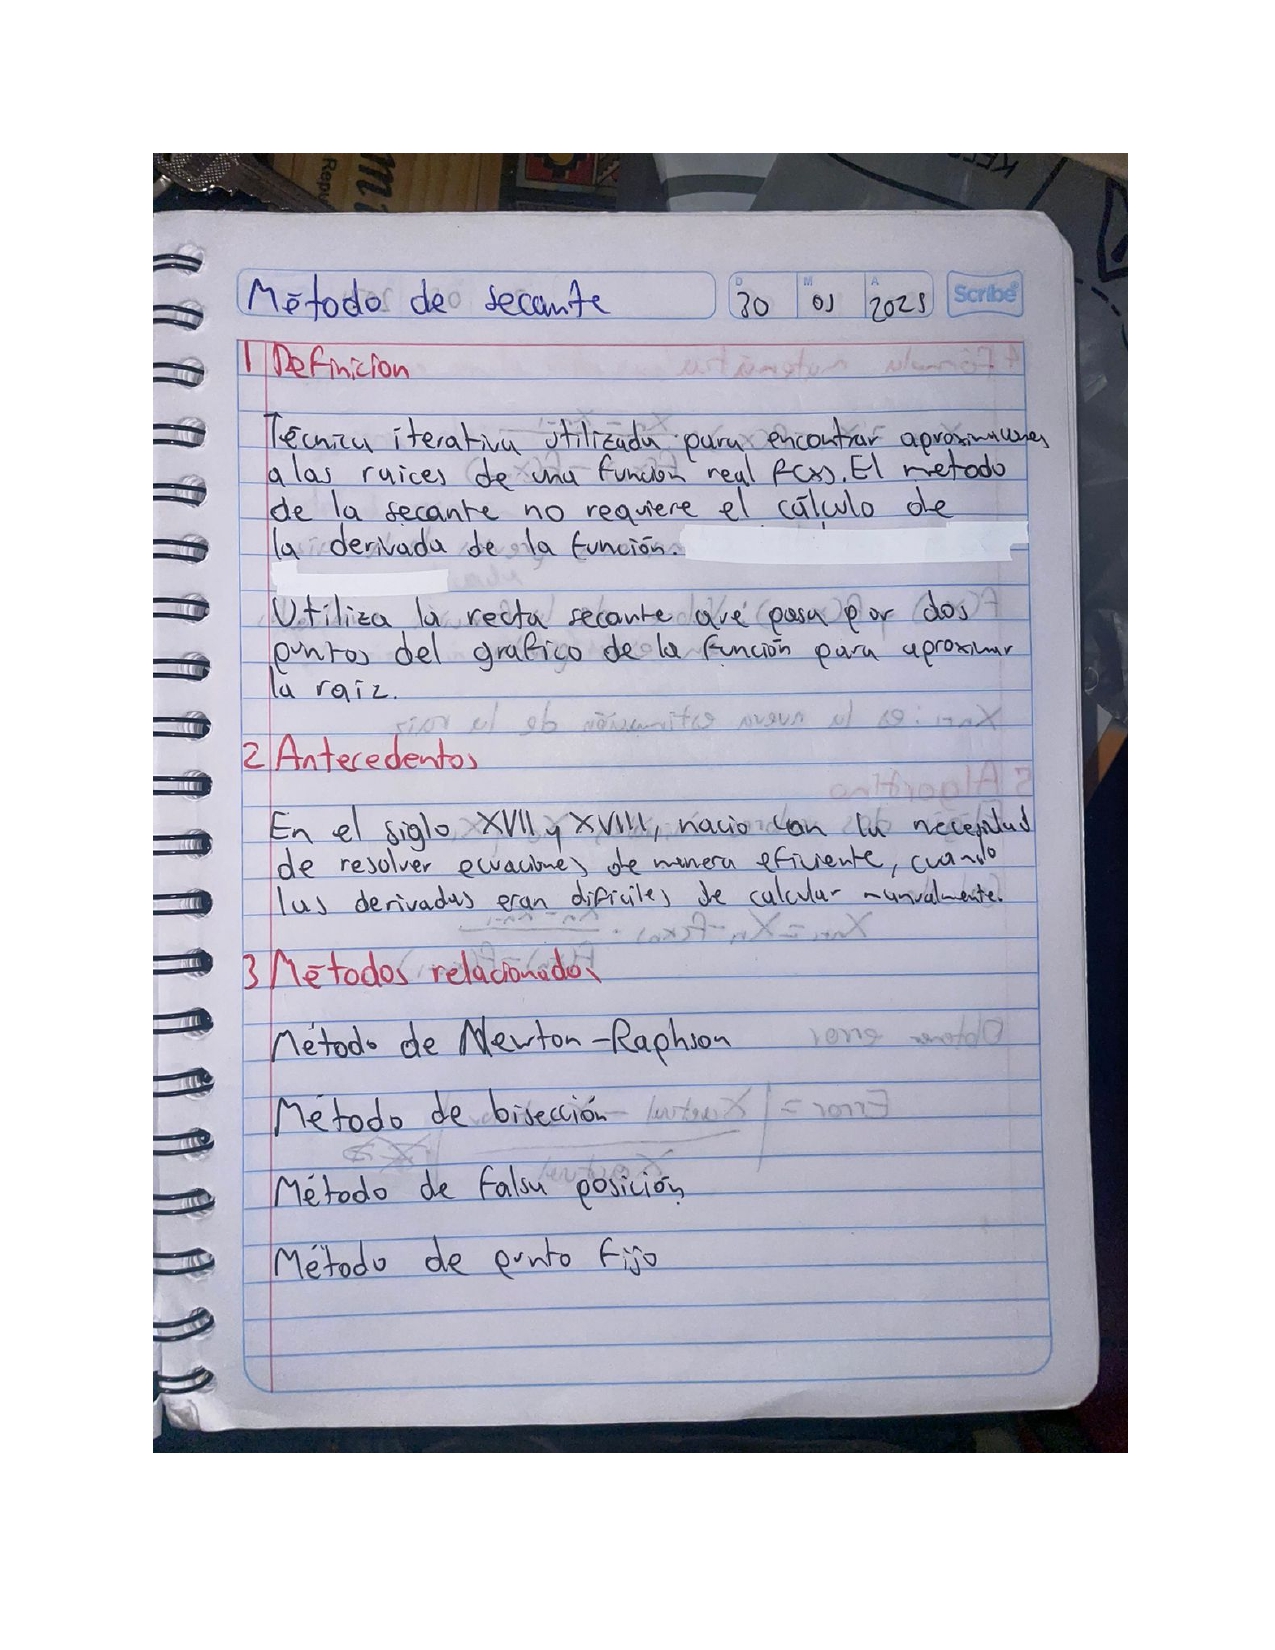 Método de secante
D M A
30 01 2025
Scribe
1 Definicion
Técnica iterativa utilizada para encontrar aproximaciones
a las raices de una función real f(x). El metodo
de la secante no requiere el cálculo de
la derivada de la función.
Utiliza la recta secante que pasa por dos
puntos del grafico de la función para aproximar
la raiz.
2 Antecedentos
En el siglo XVII y XVIII, nacio con la necesidad
de resolver ecuaciones de manera eficiente, cuando
las derivadas eran dificiles de calcular manualmente.
3 Métodos relacionados
Método de Newton-Raphson
Método de bisección
Método de falsa posición
Método de punto fijo